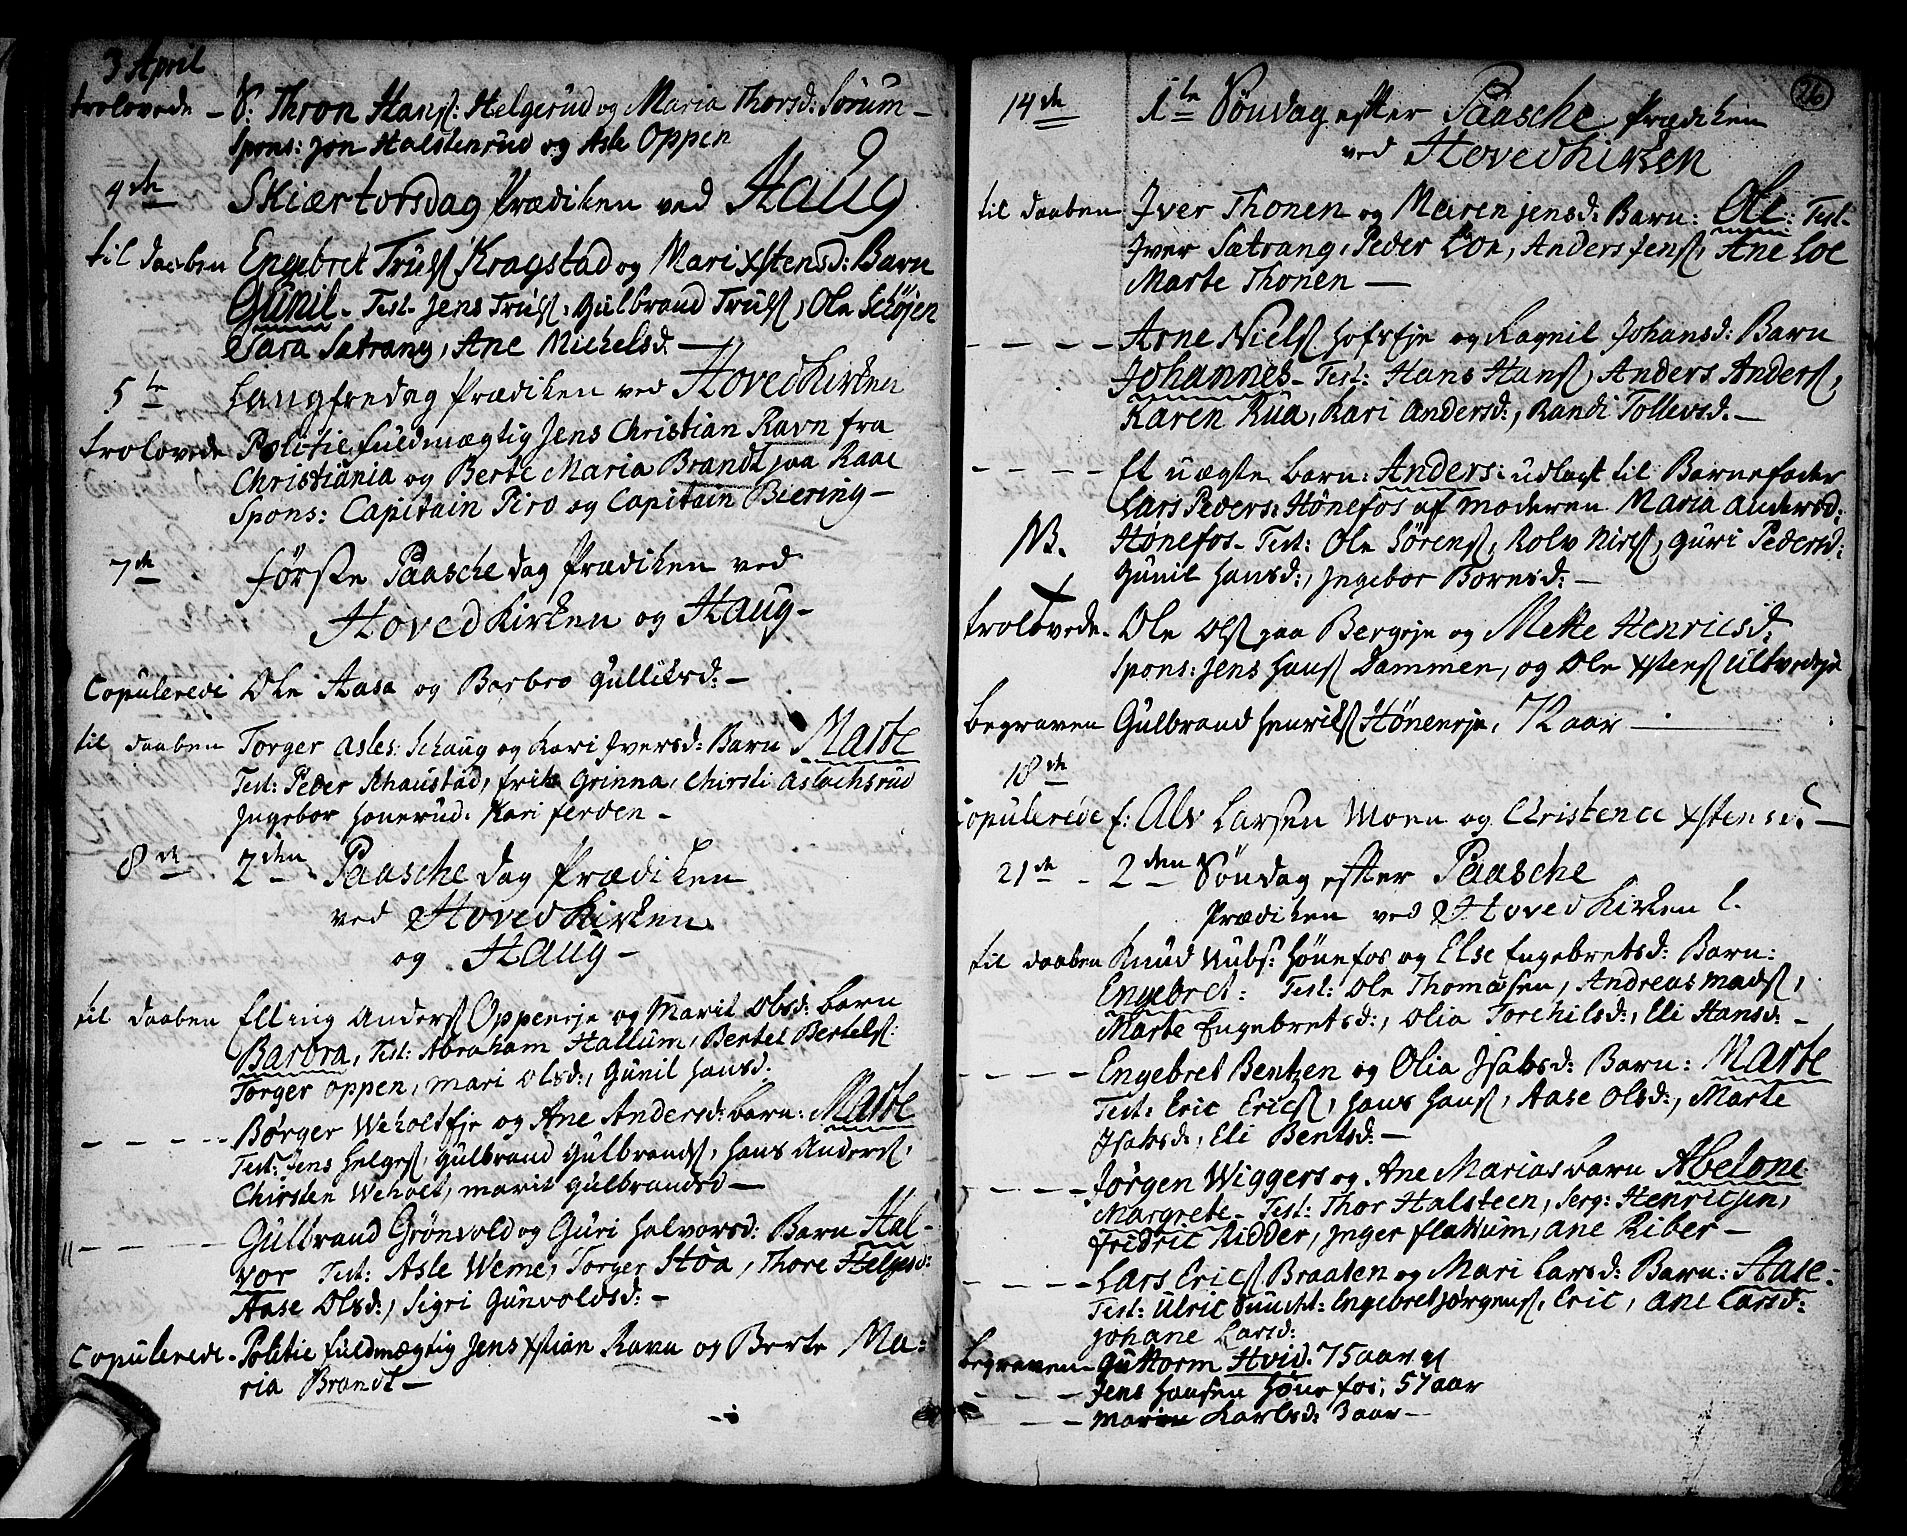 3 April
trolovede – S: Thron Hans: Helgerud og Maria Thorsd: Sørum –
Spons: Jon Halstenrud og Asle Oppen
4de Skiærtorsdag Prædiken ved Haug
til daaben Engebret Truls: Kragstad og Mari Xstensd: Barn
Gunil – Test. Jens Truls:, Gulbrand Truls:, Ole Schøjen
Sara Sætrang, Ane Michelsd. –
5te Langfredag Prædiken ved Hovedkirken
trolovede Politie fuldmægtig Jens Christian Ravn fra
Christiania og Berte Maria Brandt paa Raae
Spons: Capitain Piro og Capitain Biering –
7de første Paasche dag Prædiken ved
Hovedkirken og Haug –
Copulerede Ole Aasa og Barbro Gulliksd: –
til daaben Torger Asles: Schaug og Kari Iversd: Barn Marte
Test: Peder Schaustad, frik Grinna, Chirsti Aslachsrud
Ingebor Honerud. Kari ferden –
8de 2den Paasche dag Prædiken
ved Hovedkirken
og Haug –
til daaben Elling Anders: Oppeneje og Marit Olsd: barn
Barbra, Test: Abraham Hallum, Bertel Bertels:
Torger Oppen, Mari Olsd:, Gunil Hansd:
– – – – Børger Weholtseje og Ane Andersd: barn: Marte
Test: Jens Helges:, Gulbrand Gulbrands:, Hans Anders:,
Chirsten Weholt, Marit Gulbrandsd –
– – – Gulbrand Grønvold og Guri Halvorsd: Barn Hal-
vor Test: Asle Weme, Torger Hoa, Thore Helgesd:
Aase Olsd:, Sigri Gunvoldsd: –
Copulerede – Politie fuldmægtig Jens Xstian Ravn og Berte Ma:
ria Brandt –
26
14de 1te Søndag efter Paasche Prædiken
ved Hovedkirken
til daaben Iver Thonen og Maren Jensd: Barn: Ole: Test.
Iver Sætrang, Peder Loe, Anders Jens:, Ane Loe
Marte Thonen –
– – – – Arne Niels: Hofseje og Ragnil Johansd: Barn
Johannes – Test: Hans Hans:, Anders Anders:,
Karen Rua, Kari Andersd:, Randi Tollevsd. –
– – – – Et uægte barn: Anders: udlagt til Barnefader
Lars Peders: Hønefos af moderen Maria Andersd:
NB. Hønefos – Test: Ole Sørens:, Rolv Niels:, Guri Pedersd:
Gunil Hansd:, Ingebor Bornesd: –
trolovede – Ole Ols: paa Bergeje og Mette Henricsd:
Spons: Jens Hans: Dammen, og Ole Xstens: Ultvedeje
begraven Gulbrand Henriks: Høneneje, 72 aar –
18de
Copulerede f: Alv Larsen Moen og Christence Xstensd. –
21de – 2den Søndag efter Paasche
Prædiken ved Hovedkirken
til daaben Knud Nubs: Hønefos og Else Engebretsd: Barn:
Engebret: Test: Ole Thomesen, Andreas Mads:,
Marte Engebretsd:, Olia Torchilsd:, Eli Hansd: –
– – – – Engebret Bentzen og Olia Isaksd: Barn: Marte
Test: Eric Erics:, Hans Hans:, Aase Olsd:, Marte
Isaksd:, Eli Bentsd: –
– – – Jørgen Wiggers og Ane Marias barn Abelone
Margrete – Test: Thor Halsteen, Serg: Henricsen,
Fridric Ridder, Inger Flattum, Ane Riber –
– – – – Lars Erics: Braaten og Mari Larsd: Barn: Aase:
Test: Ulric Knucht: Engebret Jørgens:, Eric, Ane Larsd:
Johane Larsd:
begraven Guttorm Hvid. 75 aar
– – – Jens Hansen Hønefos, 57 aar
– – – Maria Karlsd: 3 aar –